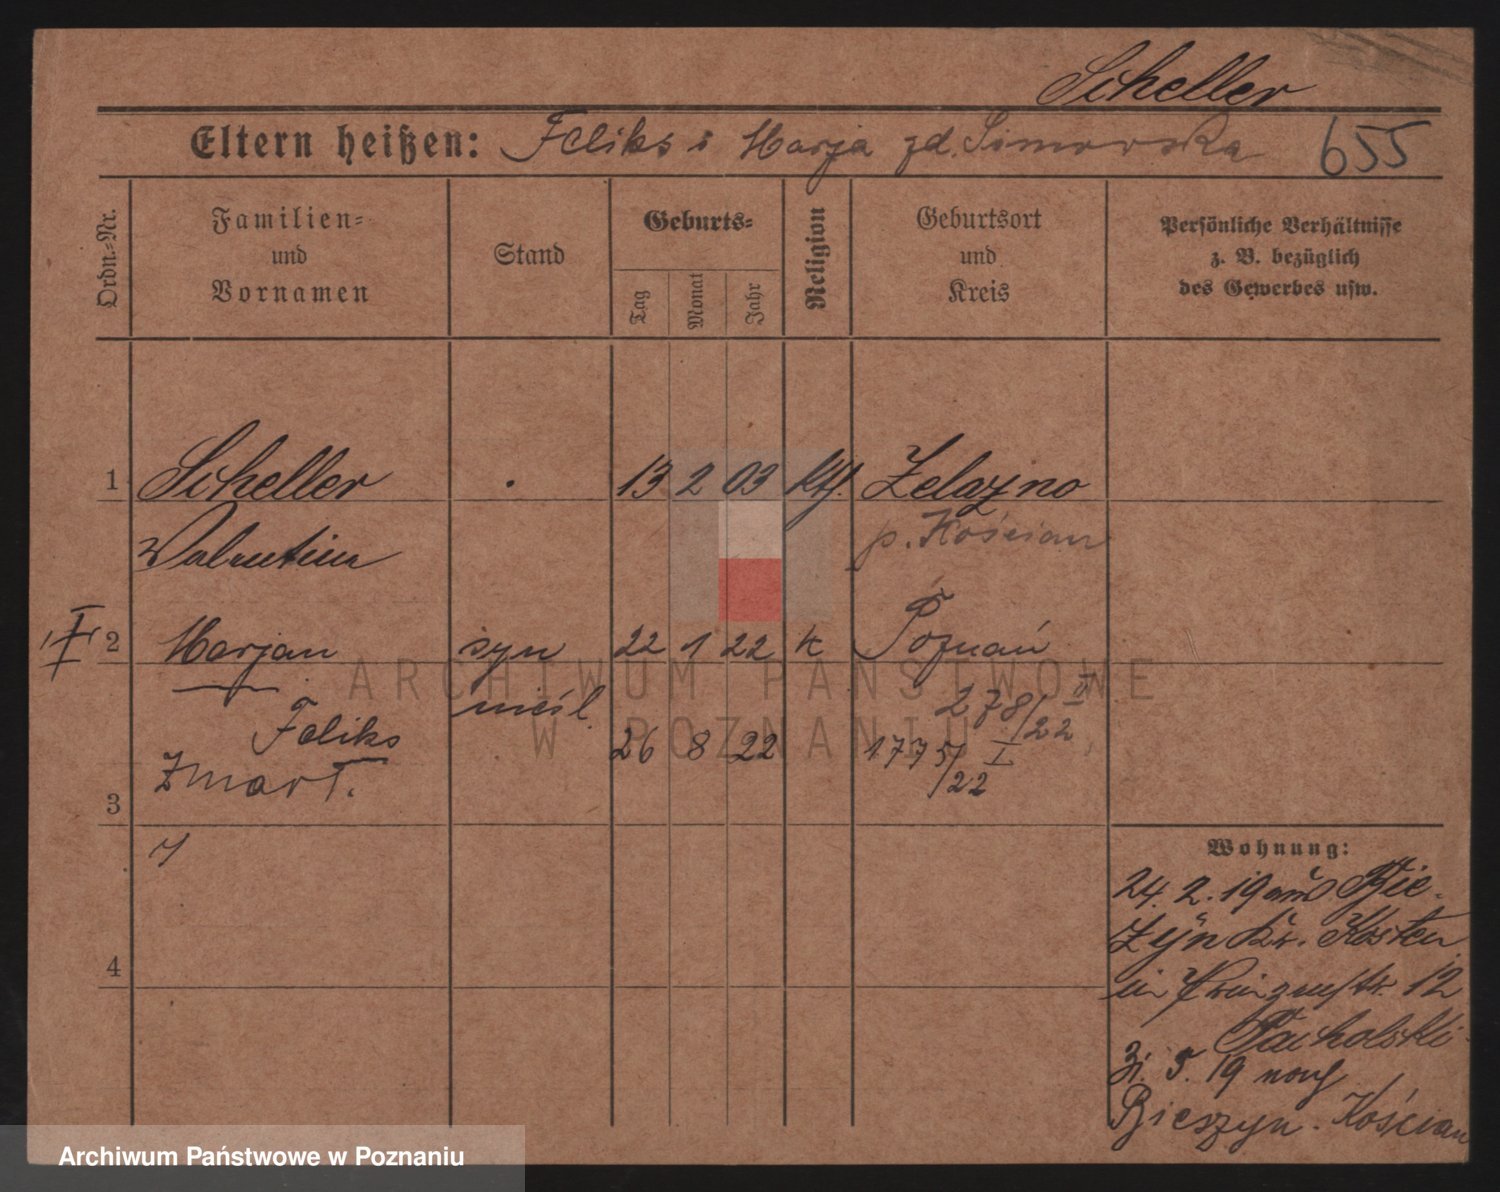 Scheller
Eltern heißen: Feliks i Marja zd. Simorska 655
Ordn.=Nr.
Familien=
und
Vornamen
Stand
Geburts=
Tag
Monat
Jahr
Religion
Geburtsort
und
Kreis
Persönliche Verhältnisse
z. B. bezüglich
des Gewerbes usw.
1 Scheller . 13 2 03 kth. Zelazno
Valentin p. Kościan
2 Marjan syn 22 1 22 k Poznań
nieśl. 278/22 II
Feliks 26 8 22 1775/22 I
zmarł.
3
4
Wohnung:
24. 2. 19 aus Bie-
zyn Kr. Kosten
in Prinzenstr. 12
Pacholski
31. 5. 19 nach
Bieszyn - Kościan
ARCHIWUM PAŃSTWOWE
W POZNANIU
Archiwum Państwowe w Poznaniu